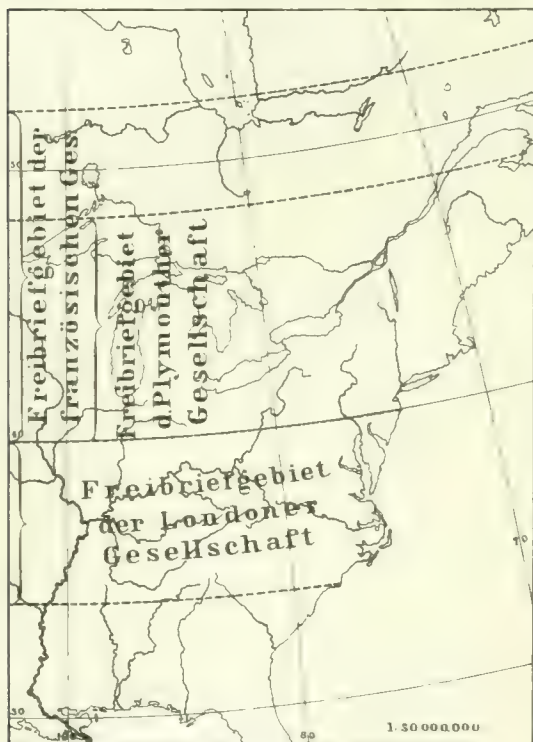 Freibriefgebiet der
französischen Ges.
Freibriefgebiet
d.Plymouther
Gesellschaft
Freibriefgebiet
der Londoner
Gesellschaft
50
40
30
70
80
1:30000000